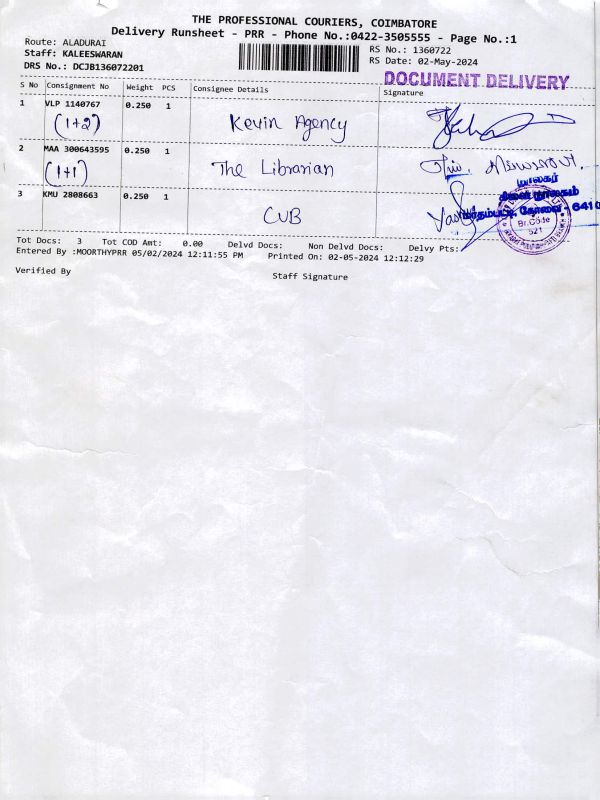 THE PROFESSIONAL COURIERS, COIMBATORE
Delivery Runsheet - PRR - Phone No.:0422-3505555 - Page No.:1
Route: ALADURAI
Staff: KALEESWARAN
DRS No.: DCJB136072201
RS No.: 1360722
RS Date: 02-May-2024
DOCUMENT DELIVERY
S No Consignment No Weight PCS Consignee Details Signature
1 VLP 1140767 0.250 1 Kevin Agency
(1+2)
2 MAA 300643595 0.250 1 The Librarian
(1+1)
நூலகர்
கிளை நூலகம்
கோவை - 6410
3 KMU 2808663 0.250 1 CUB
Br.Code
521
Tot Docs: 3 Tot COD Amt: 0.00 Delvd Docs: Non Delvd Docs: Delvy Pts:
Entered By :MOORTHYPRR 05/02/2024 12:11:55 PM Printed On: 02-05-2024 12:12:29
Verified By Staff Signature